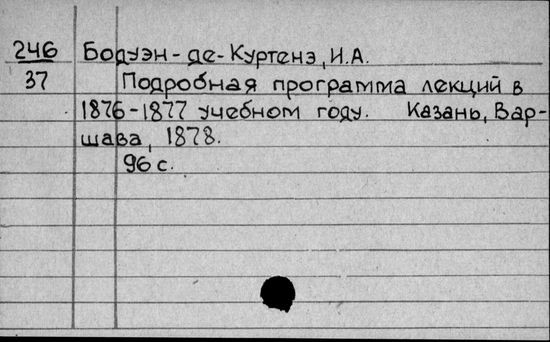 246 Бодуэн-де-Куртенэ, И.А.
37 Подробная программа лекций в
1876-1877 учебном году. Казань, Вар-
шава, 1878.
96 с.